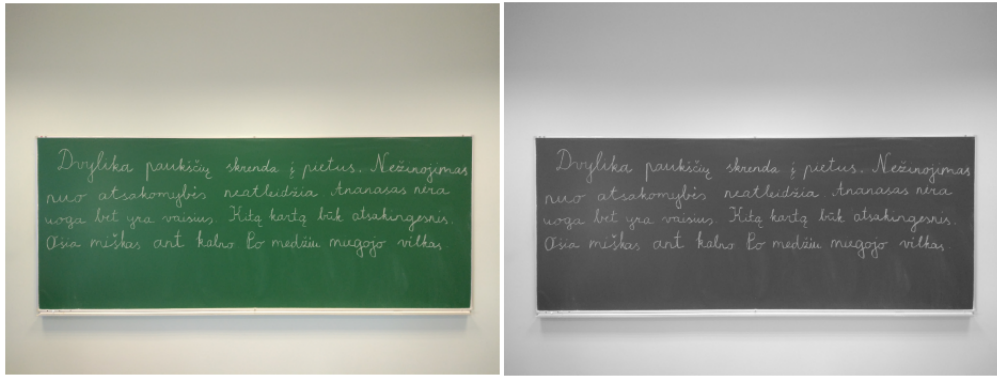 Dvylika paukščių skrenda į pietus. Nežinojimas
nuo atsakomybės neatleidžia. Ananasas nėra
uoga bet yra vaisius. Kitą kartą būk atsakingesnis.
Ošia miškas ant kalno Po medžiu miegojo vilkas
Dvylika paukščių skrenda į pietus. Nežinojimas
nuo atsakomybės neatleidžia. Ananasas nėra
uoga bet yra vaisius. Kitą kartą būk atsakingesnis.
Ošia miškas ant kalno Po medžiu miegojo vilkas